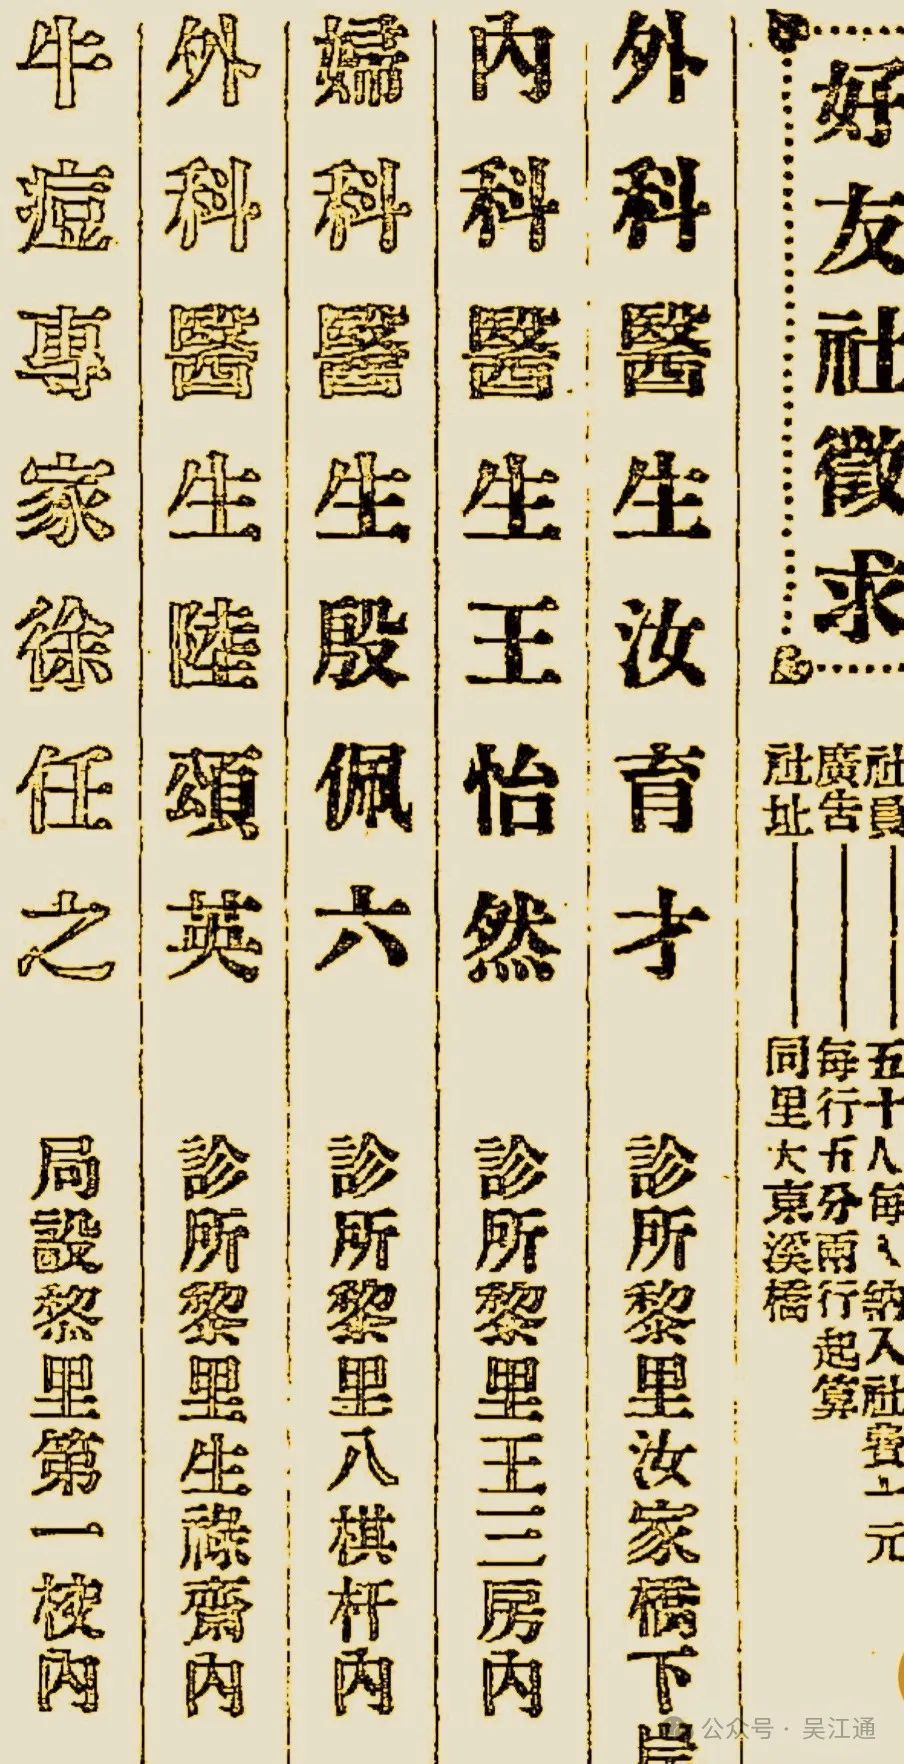 好友社徵求
社員 五十人每人納入社費一元
廣告 每行五分兩行起算
社址 同里大東溪橋
外科醫生汝育才 診所黎里汝家橋下岸
內科醫生王怡然 診所黎里王三房內
婦科醫生殷佩六 診所黎里八棋杆內
外科醫生陸頌英 診所黎里生祿齋內
牛痘專家徐任之 局設黎里第一校內
公众号 · 吴江通